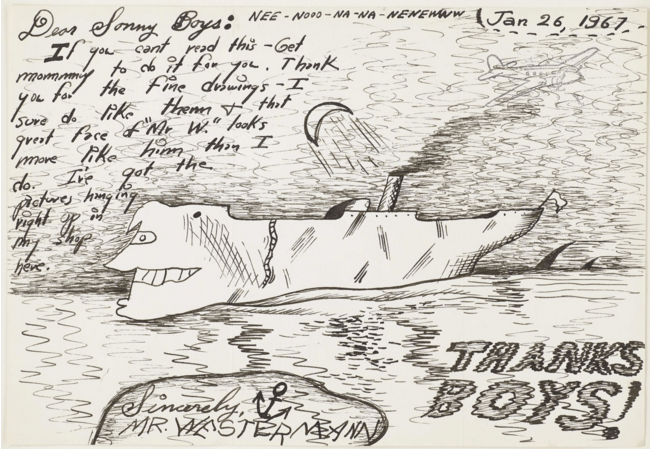 Dear Sonny Boys:
NEE-NOOO-NA-NA-NENEWWW
Jan 26, 1967
If you cant read this - Get
mommmy to do it for you. Thank
you for the fine drawings - I
sure do like them & that
great face of "Mr W." looks
more like him than I
do. I've got the
pictures hanging
right up in
my shop
here.
THANKS
BOYS!
Sincerely,
MR. WESTERMANN